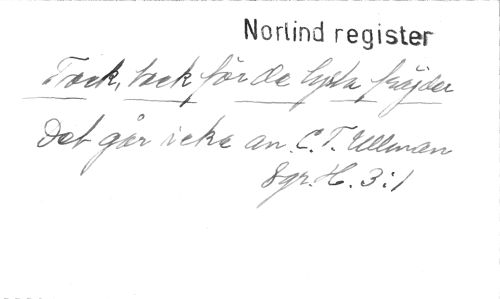 Norlind register
Tack, tack för de lysta fröjder
Det går icke an. C. T. Ullman
Sgr. H. 3:1